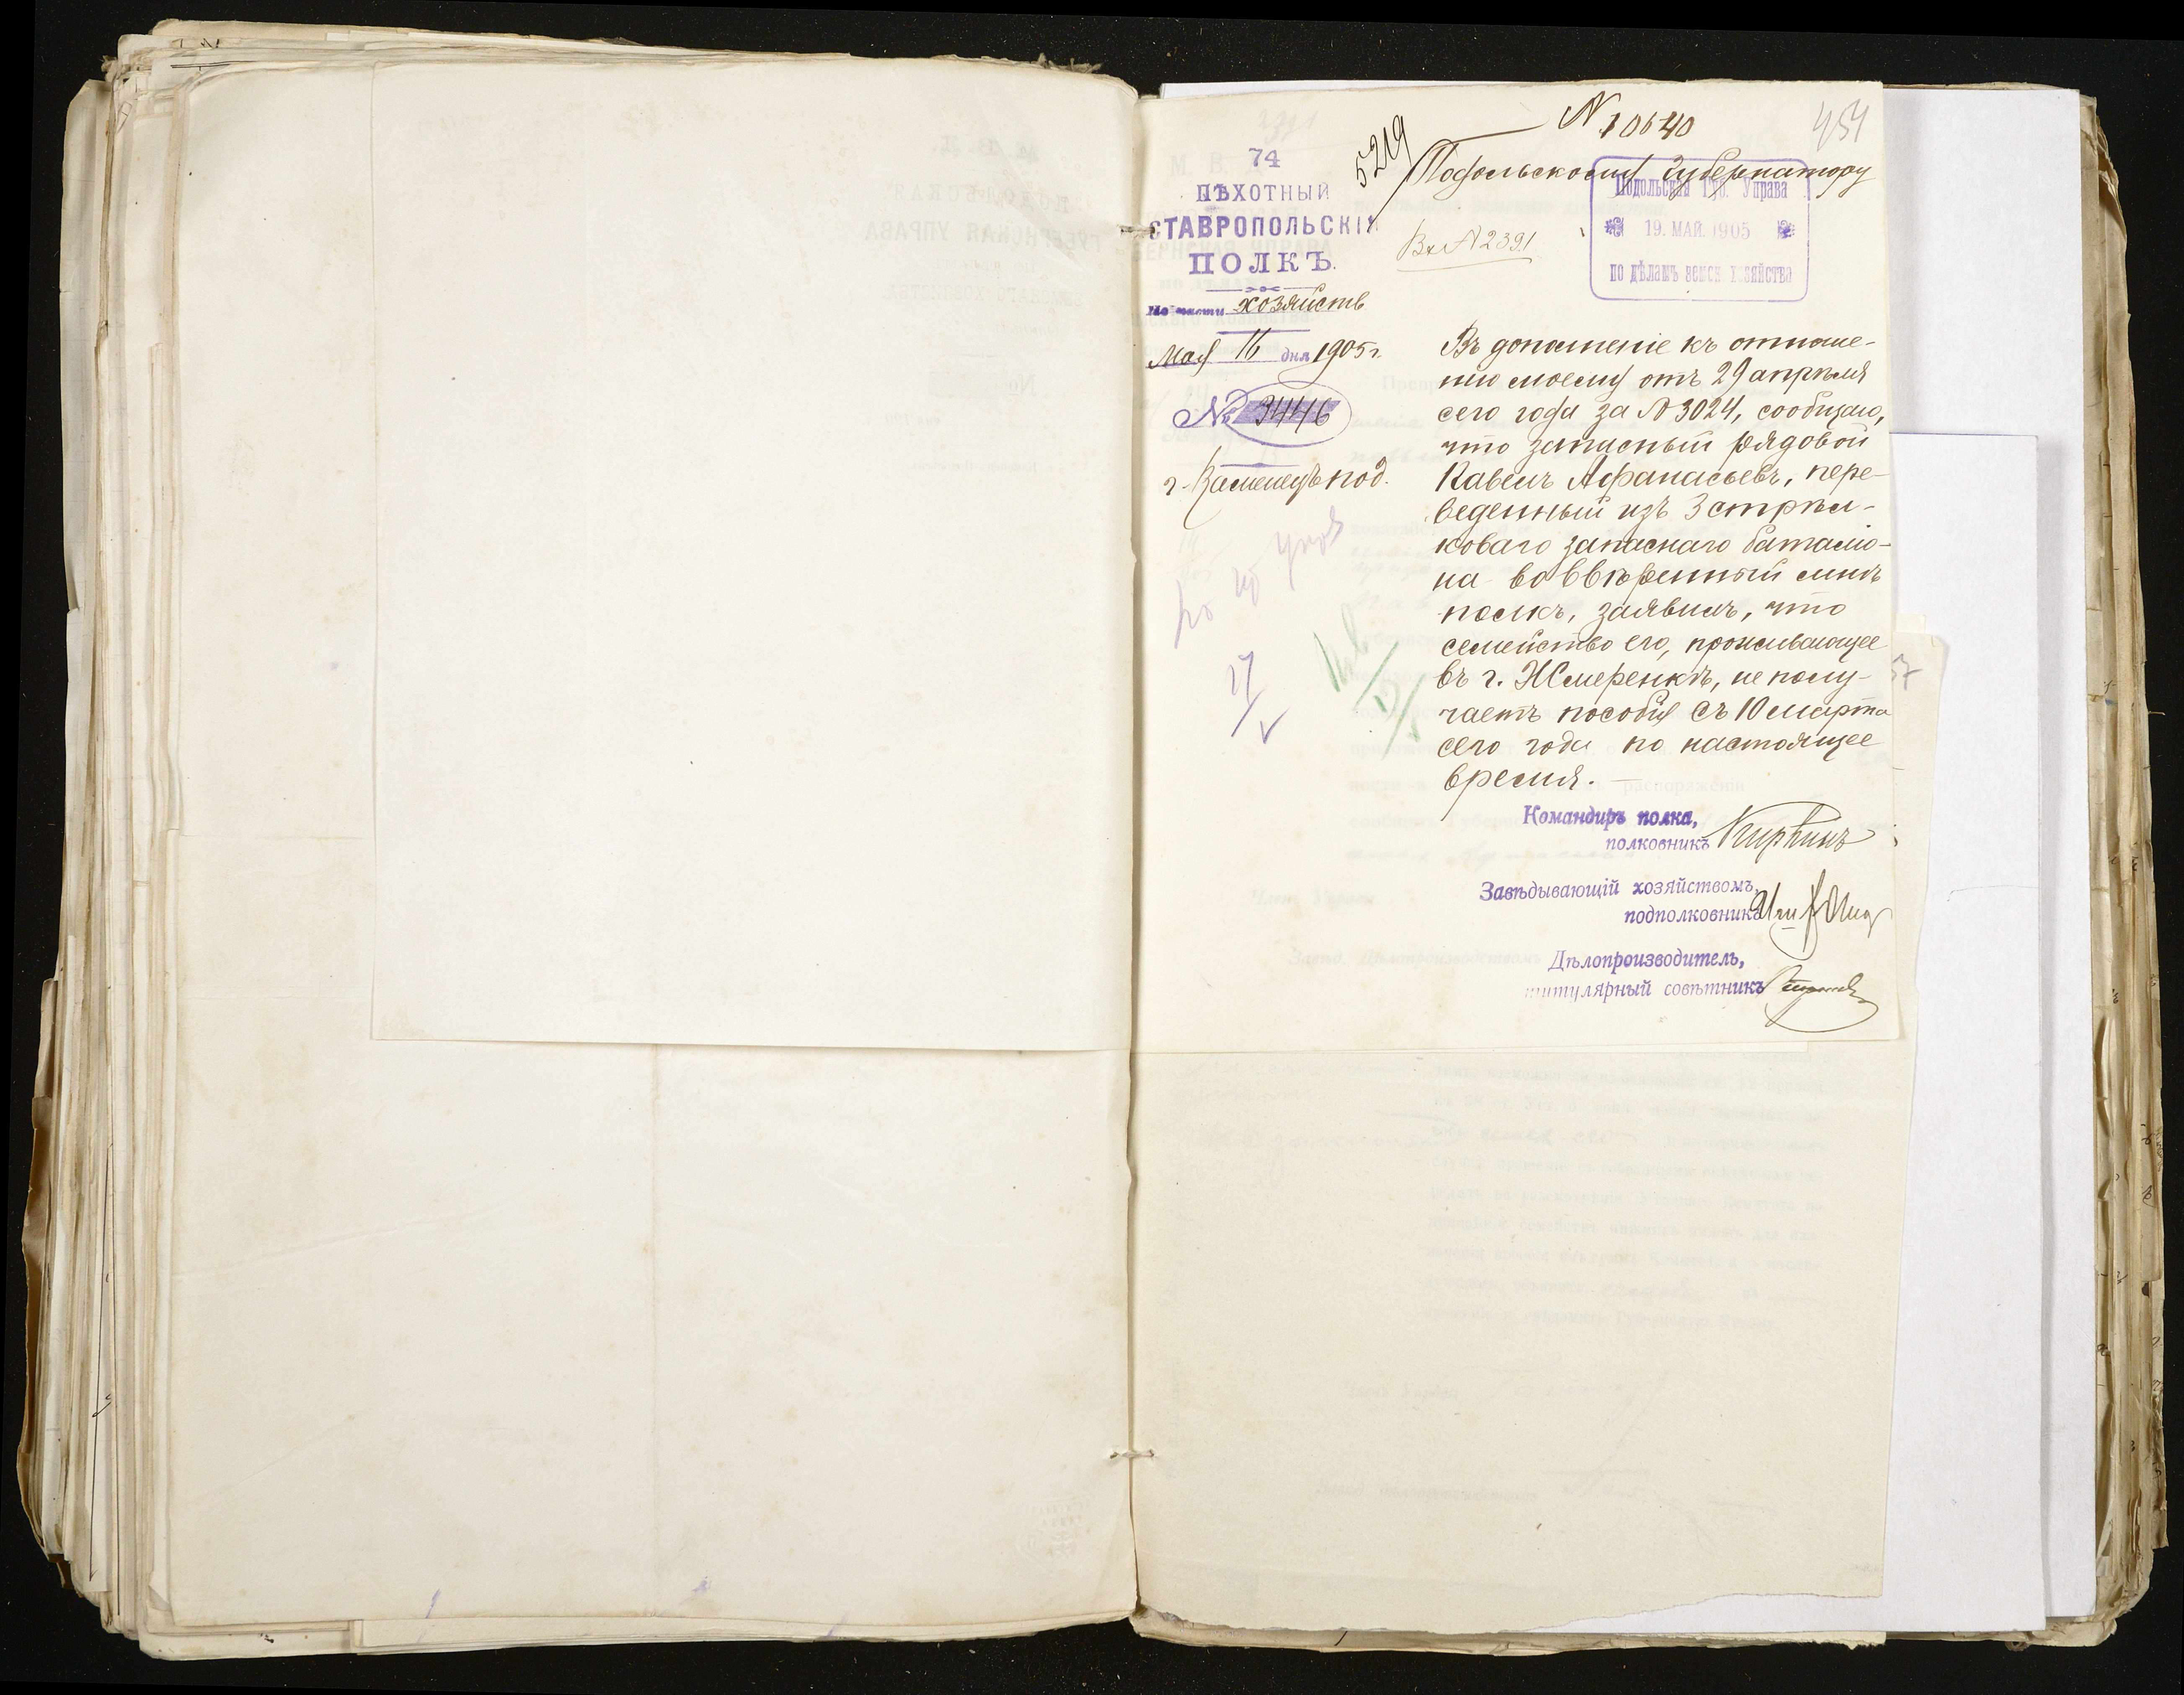 454
N 10640
5219
Подольскому Губернатору
74
ПѢХОТНЫЙ
СТАВРОПОЛЬСКІЙ
ПОЛКЪ.
По части хозяйств
Мая 16 дня 1905 г.
№ 3446
г. Каменецъ под.
Вх N 2391
Подольская Губ. Управа
19. МАЙ. 1905
по дѣламъ земск. хозяйства
Въ дополненіе къ отноше-
нію моему отъ 29 апрѣля
сего года за N 3024, сообщаю,
что запасный рядовой
Павелъ Афанасьевъ, пере-
веденный изъ 3 стрѣл-
коваго запаснаго баталіо-
на во ввѣренный мнѣ
полкъ, заявилъ, что
семейство его, проживающее
въ г. Жмеренкѣ, не полу-
чаетъ пособія съ 10 марта
сего года по настоящее
время. —
27/V
Командиръ полка,
полковникъ
Завѣдывающій хозяйствомъ,
подполковникъ
Дѣлопроизводитель,
титулярный совѣтникъ